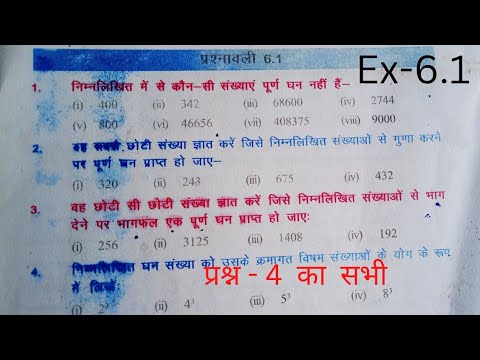 प्रश्नावली 6.1
Ex-6.1
1. निम्नलिखित में से कौन-सी संख्याएं पूर्ण घन नहीं हैं-
(i) 400 (ii) 342 (iii) 68600 (iv) 2744
(v) 800 (vi) 46656 (vii) 408375 (viii) 9000
2. वह सबसे छोटी संख्या ज्ञात करें जिसे निम्नलिखित संख्याओं से गुणा करने
पर पूर्ण घन प्राप्त हो जाए-
(i) 320 (ii) 243 (iii) 675 (iv) 432
3. वह छोटी सी छोटी संख्या ज्ञात करें जिसे निम्नलिखित संख्याओं से भाग
देने पर भागफल एक पूर्ण घन प्राप्त हो जाएः
(i) 256 (ii) 3125 (iii) 1408 (iv) 192
4. निम्नलिखित घन संख्या को उसके क्रमागत विषम संख्याओं के योग के रूप
में लिखें
प्रश्न - 4 का सभी
(i) 2³ (ii) 4³ (iii) 5³ (iv) 8³